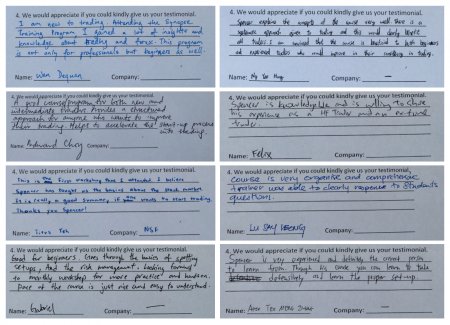 4. We would appreciate if you could kindly give us your testimonial.
I am new to trading. Attending the Synapse
Training Program, I gained a lot of insights and
knowledge about trading and forex. This program
is not only for professionals but beginners as well.
Name: Wen Dequan Company:
4. We would appreciate if you could kindly give us your testimonial.
Spencer explains the concepts of the course very well. There is a
systematic approach given to trading and this would clearly benefit
all traders. I am convinced that the course is beneficial to both beginners
and experienced traders who will improve in their consistency in trading.
Name: Company: —
4. We would appreciate if you could kindly give us your testimonial.
A good course/program for both new and
intermediate traders. Provides a structured
approach for anyone who wants to improve
their trading. Helps to accelerate the start-up process
into trading.
Name: Edward Choy Company:
4. We would appreciate if you could kindly give us your testimonial.
Spencer is knowledgeable and is willing to share
his experience as a HF Trader and an retail
trader.
Name: Felix Company:
4. We would appreciate if you could kindly give us your testimonial.
This is my first workshop that I attended. I believe
Spencer has taught us the basics about the stock market
It is really a good summary, if one wants to start trading.
Thanks you Spencer!
Name: Linus Teh Company: NSF
4. We would appreciate if you could kindly give us your testimonial.
course is very organise and comprehensive
trainer was able to clearly response to students
questions.
Name: Company:
4. We would appreciate if you could kindly give us your testimonial.
Good for beginners. Goes through the basics of getting
setups, and the risk management. Looking forward
to monthly workshop for more practice and hands on.
Pace of the course is just nice and easy to understand.
Name: Gabriel Company: —
4. We would appreciate if you could kindly give us your testimonial.
Spencer is very experienced and definitely the correct person
to learn from. Through his course you can learn to trade
defensively and learn the proper set-up.
Name: Company: —